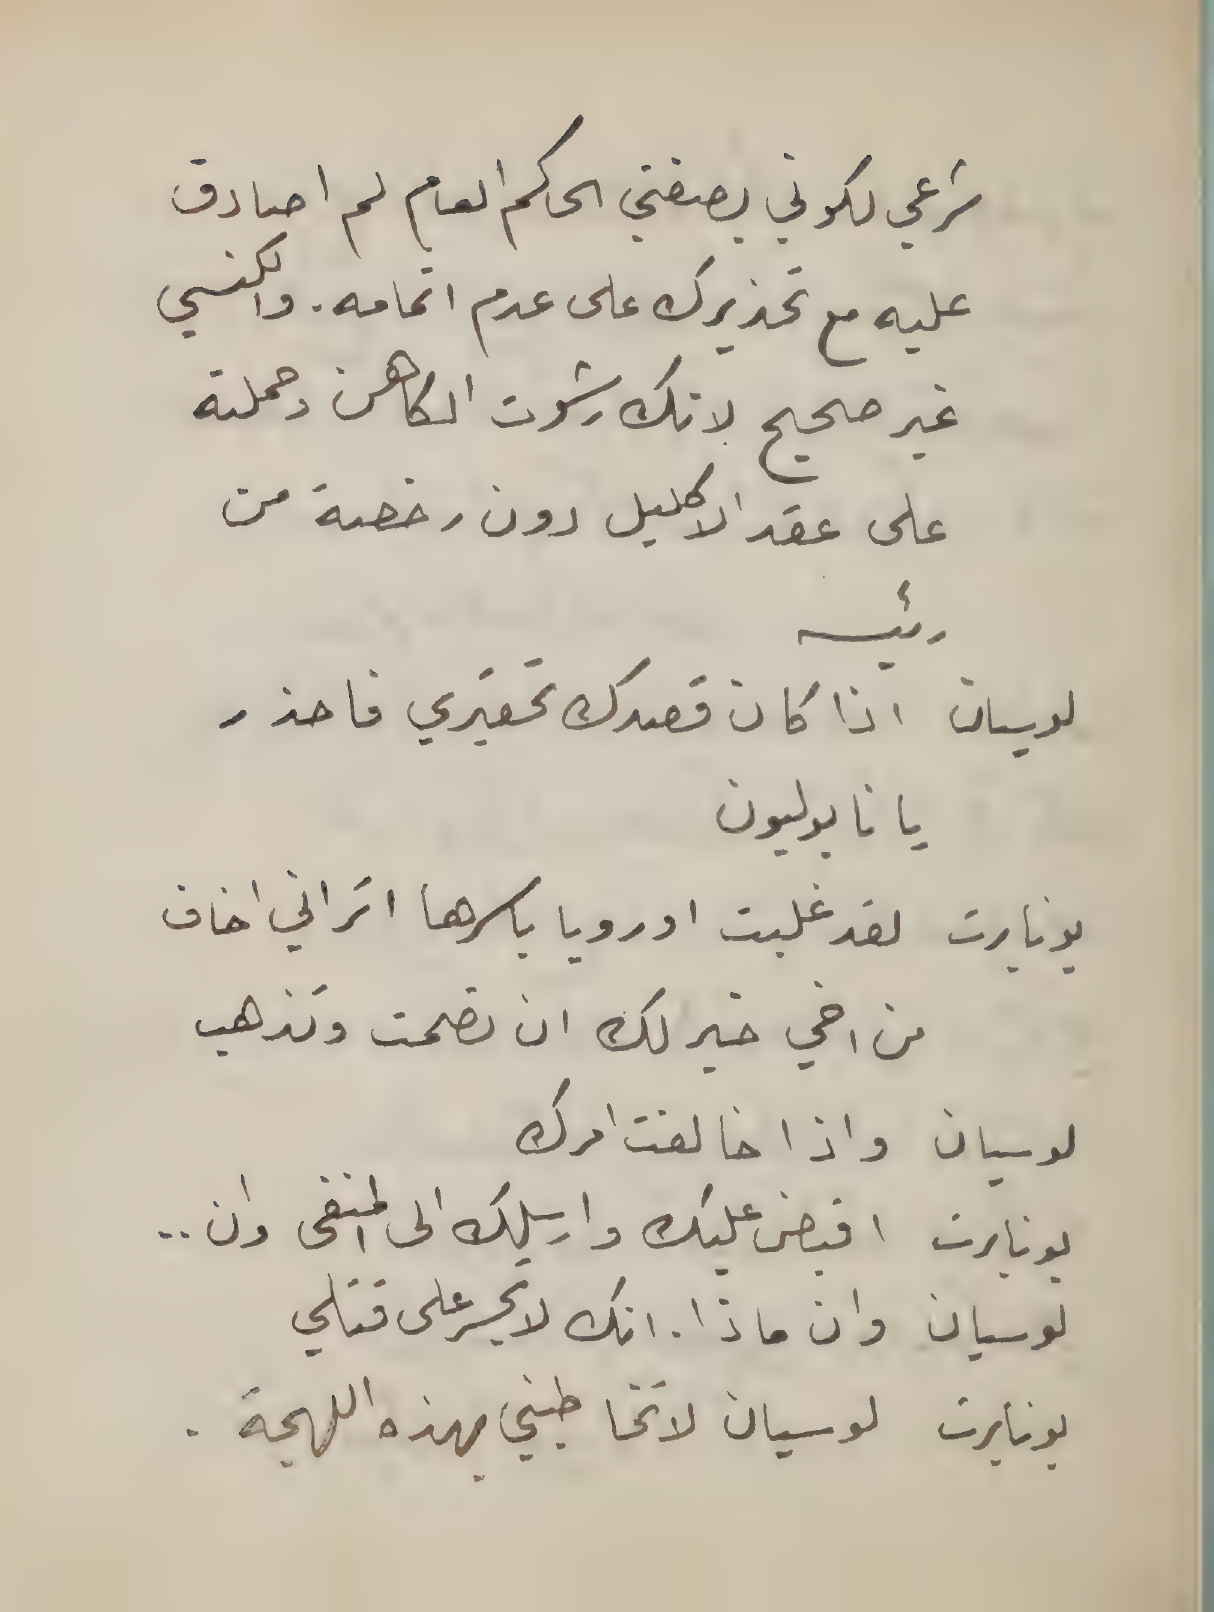 شرعي لكوني بصفتي الحاكم العام لم اصادق
عليه مع تحذيرك على عدم اتمامه. والكنسي
غير صحيح لانك رشوت الكاهن وحملته
على عقد الاكليل دون رخصة من
رئيسه
لوسيان اذا كان قصدك تحقيري فاحذر
يا نابوليون
بونابرت لقد غلبت اوروبا باسرها اتراني اخاف
من اخي خير لك ان تصمت وتذهب
لوسيان واذا خالفت امرك
بونابرت اقبض عليك وارسلك الى المنفى وان ..
لوسيان وان ماذا. انك لا تجسر على قتلي
بونابرت لوسيان لا تخاطبني بهذه اللهجة .